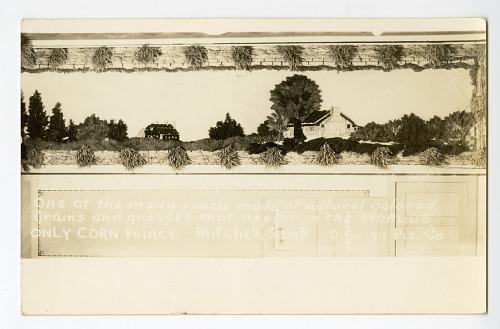 One of the many panels made of natural colored
grains and grasses that appear in the WORLDS
ONLY CORN Palace - Mitchell, S. Dak Pix Co